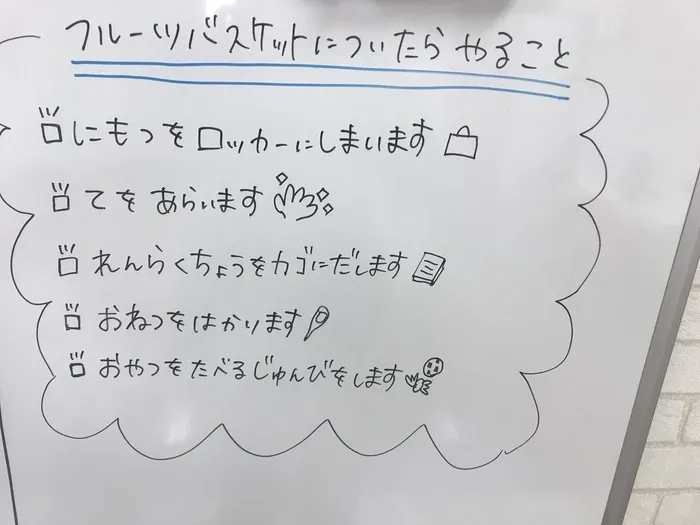 フルーツバスケットについたらやること
□にもつをロッカーにしまいます
□てをあらいます
□れんらくちょうをカゴにだします
□おねつをはかります
□おやつをたべるじゅんびをします